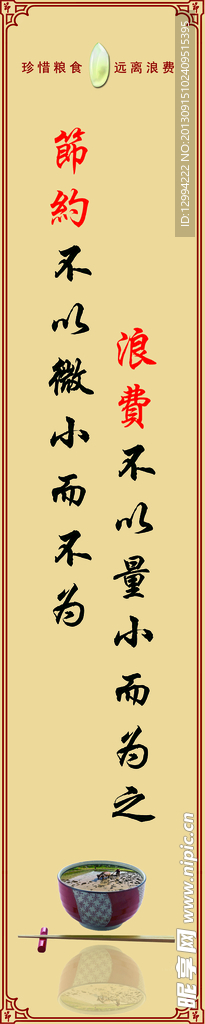 珍惜粮食 远离浪费
節約不以微小而不为
浪費不以量小而为之
ID:12994222 NO:20130915102409515395
昵享网 www.nipic.cn